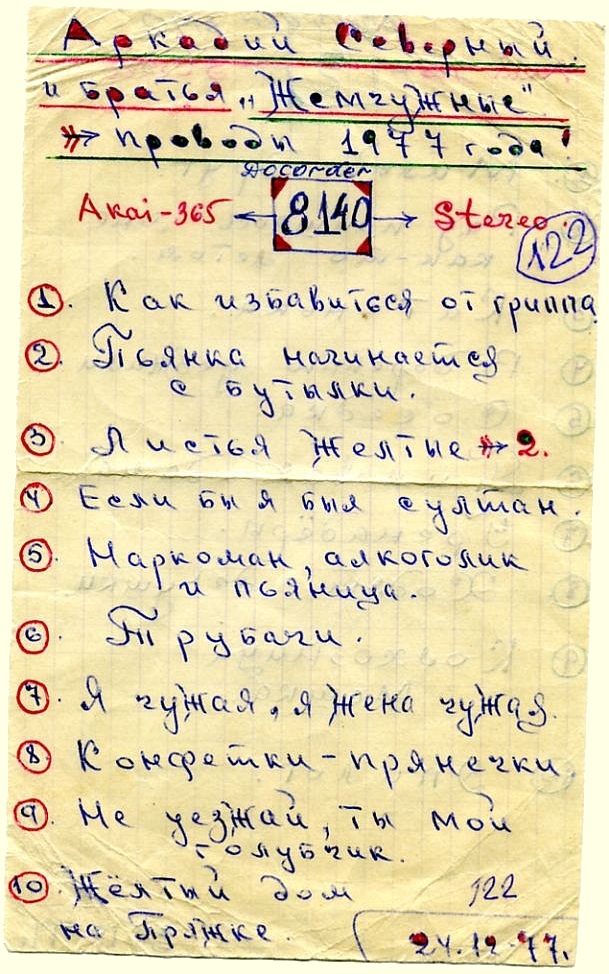 Аркадий Северный.
и братья „Жемчужные"
→ проводы 1977 года!
Docorder
Akai-365 ← 8140 → Stereo.
122
1. Как избавиться от гриппа
2. Пьянка начинается
с бутылки.
3. Листья желтые → 2.
4. Если бы я был султан.
5. Наркоман, алкоголик
и пьяница.
6. Трубачи.
7. Я чужая, я жена чужая.
8. Конфетки-прянечки
9. Не уезжай, ты мой
голубчик.
10. Жёлтый дом 122
на Пряжке.
24.12-77.